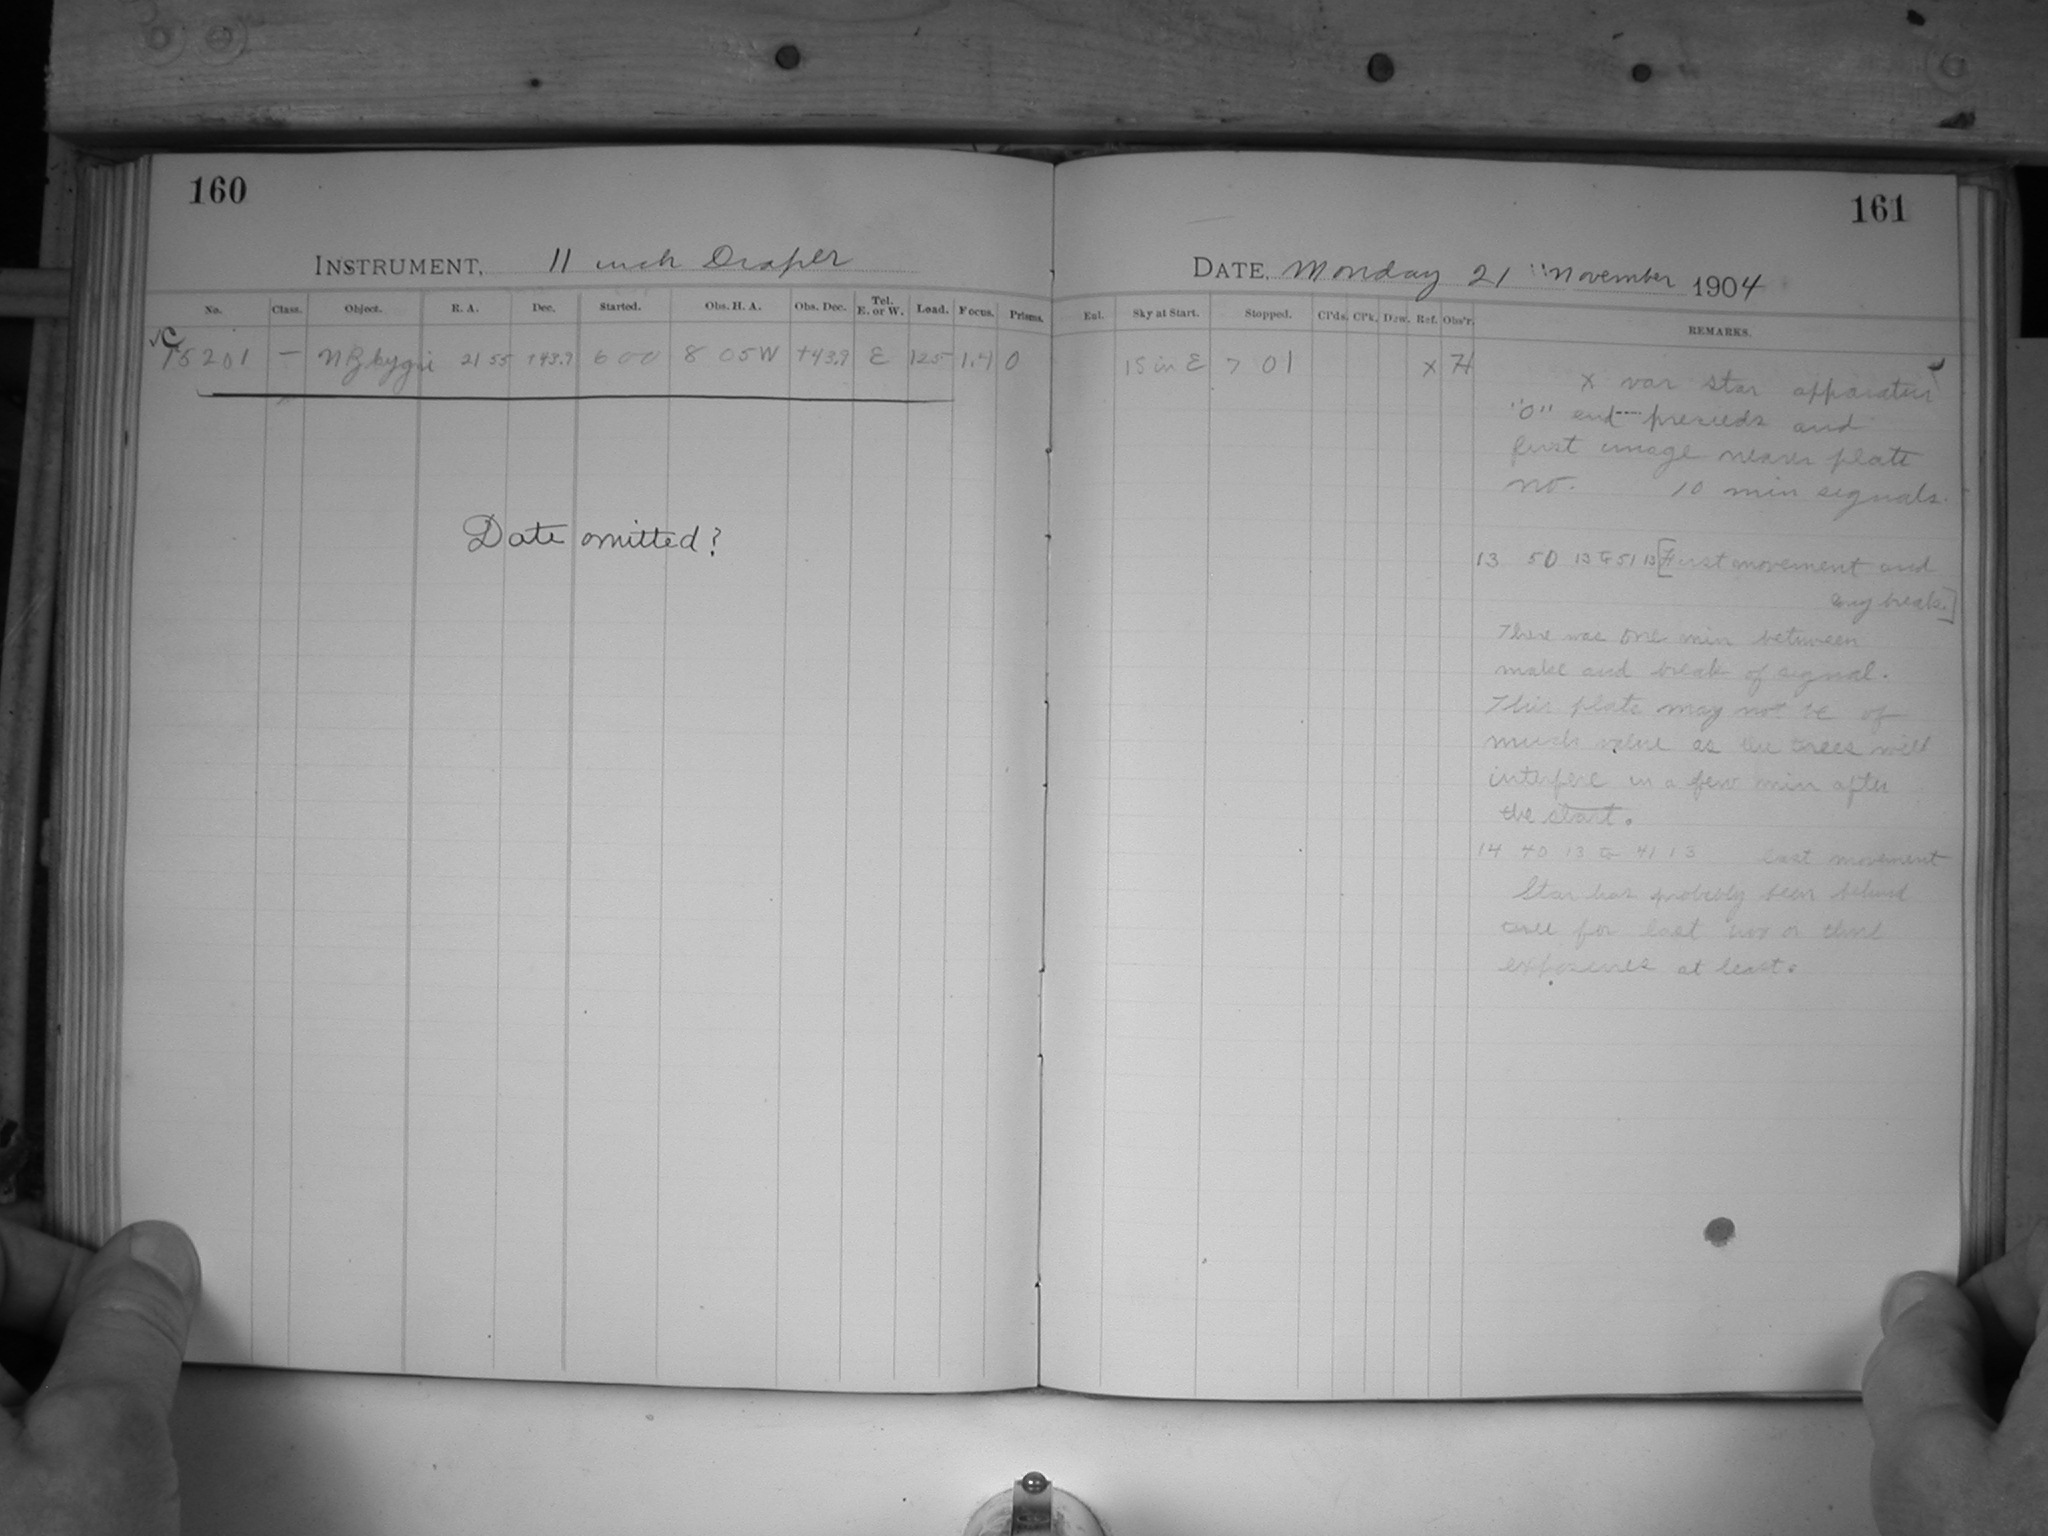 160
161
INSTRUMENT, 11 inch Draper
DATE, Monday 21 " November 1904
No. Class. Object. R. A. Dec. Started. Obs. H. A. Obs. Dec. Tel. E. or W. Load. Focus. Prisms.
Enl. Sky at Start. Stopped. Cl'ds. Cl'k. Dew. Ref. Obs'r. REMARKS.
C 15201 — 21 55 +43.9 6 00 8 05W +43.9 E 125 1.41 0
15 in E 7 01 X H
x var star apparatus
"O" end preceeds and
first image nearer plate
no. 10 min signals.
Date omitted?
13 50 13 to 51 13 [First movement and
key break.]
There was one min between
make and break of signal.
This plate may not be of
much value as the trees will
interfere in a few min after
the start.
14 40 13 to 41 13 last movement
Star has probably been behind
tree for last two or three
exposures at least.